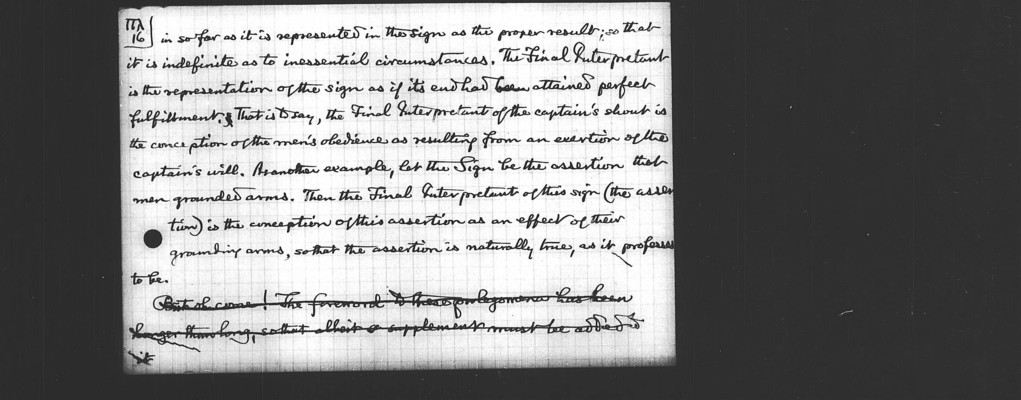 Πλ
16
in so far as it is represented in the Sign as the proper result; so that
it is indefinite as to inessential circumstances. The Final Interpretant
is the representation of the sign as if its end had been attained perfect
fulfillment. That is to say, the Final Interpretant of the captain's shout is
the conception of the men's obedience as resulting from an exertion of the
captain's will. As another example, let the Sign be the assertion that
men grounded arms. Then the Final Interpretant of this sign (the asser
tion) is the conception of this assertion as an effect of their
grounding arms, so that the assertion is naturally true, as it professes
to be.
But oh come! The foreword to these prolegomena has been
longer than long, so that albeit a supplement must be added to
it